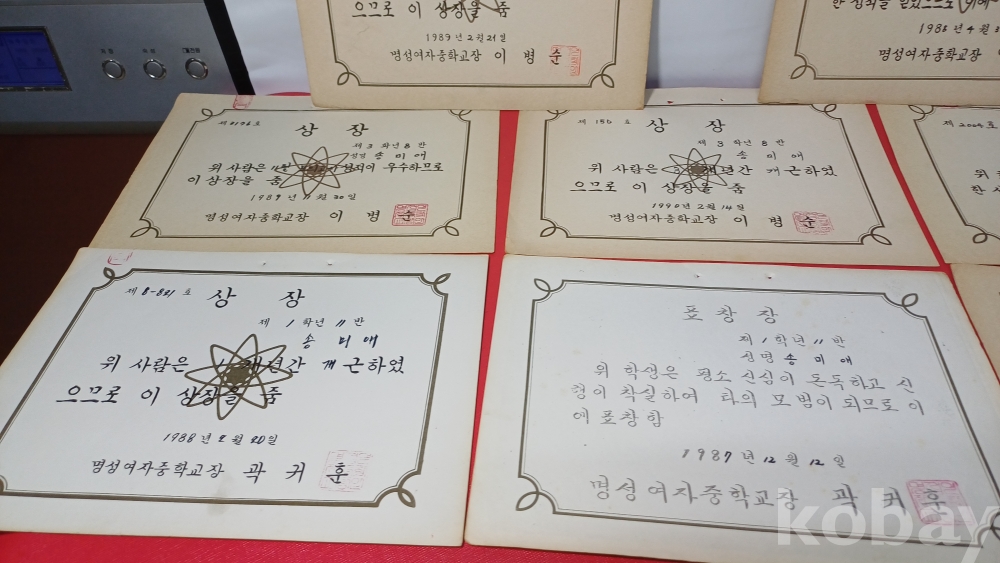 으므로 이 상장을 줌
1989년 2월 21일
명성여자중학교장 이 병 순
1988년 4월
명성여자중학교장
제 호
상 장
제 3 학년 8 반
성명 송 미 애
위 사람은 성적이 우수하므로
이 상장을 줌
1989년 11월 30일
명성여자중학교장 이 병 순
제 150 호
상 장
제 3 학년 8 반
송 미 애
위 사람은 개년간 개근하였
으므로 이 상장을 줌
1990년 2월 14일
명성여자중학교장 이 병 순
제 2004 호
위
한 사
제 8-821 호
상 장
제 1 학년 11 반
송 미 애
위 사람은 1 개년간 개근하였
으므로 이 상장을 줌
1988년 2월 20일
명성여자중학교장 곽 귀 훈
표 창 장
제 1 학년 11 반
신명 송 미 애
위 학생은 평소 신심이 돈독하고 선
행이 착실하여 타의 모범이 되므로 이
에 표창함
1987년 12월 12일
명성여자중학교장 곽 귀 훈
kobay